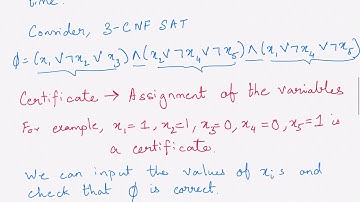 time.
Consider, 3-CNF SAT
ϕ = (x₁ ∨ ¬x₂ ∨ x₃) ∧ (x₂ ∨ ¬x₄ ∨ ¬x₅) ∧ (x₁ ∨ ¬x₄ ∨ ¬x₅)
Certificate → Assignment of the variables
For example, x₁ = 1, x₂=1, x₃=0, x₄ = 0, x₅ = 1 is
a certificate.
We can input the values of xᵢs and
check that ϕ is correct.